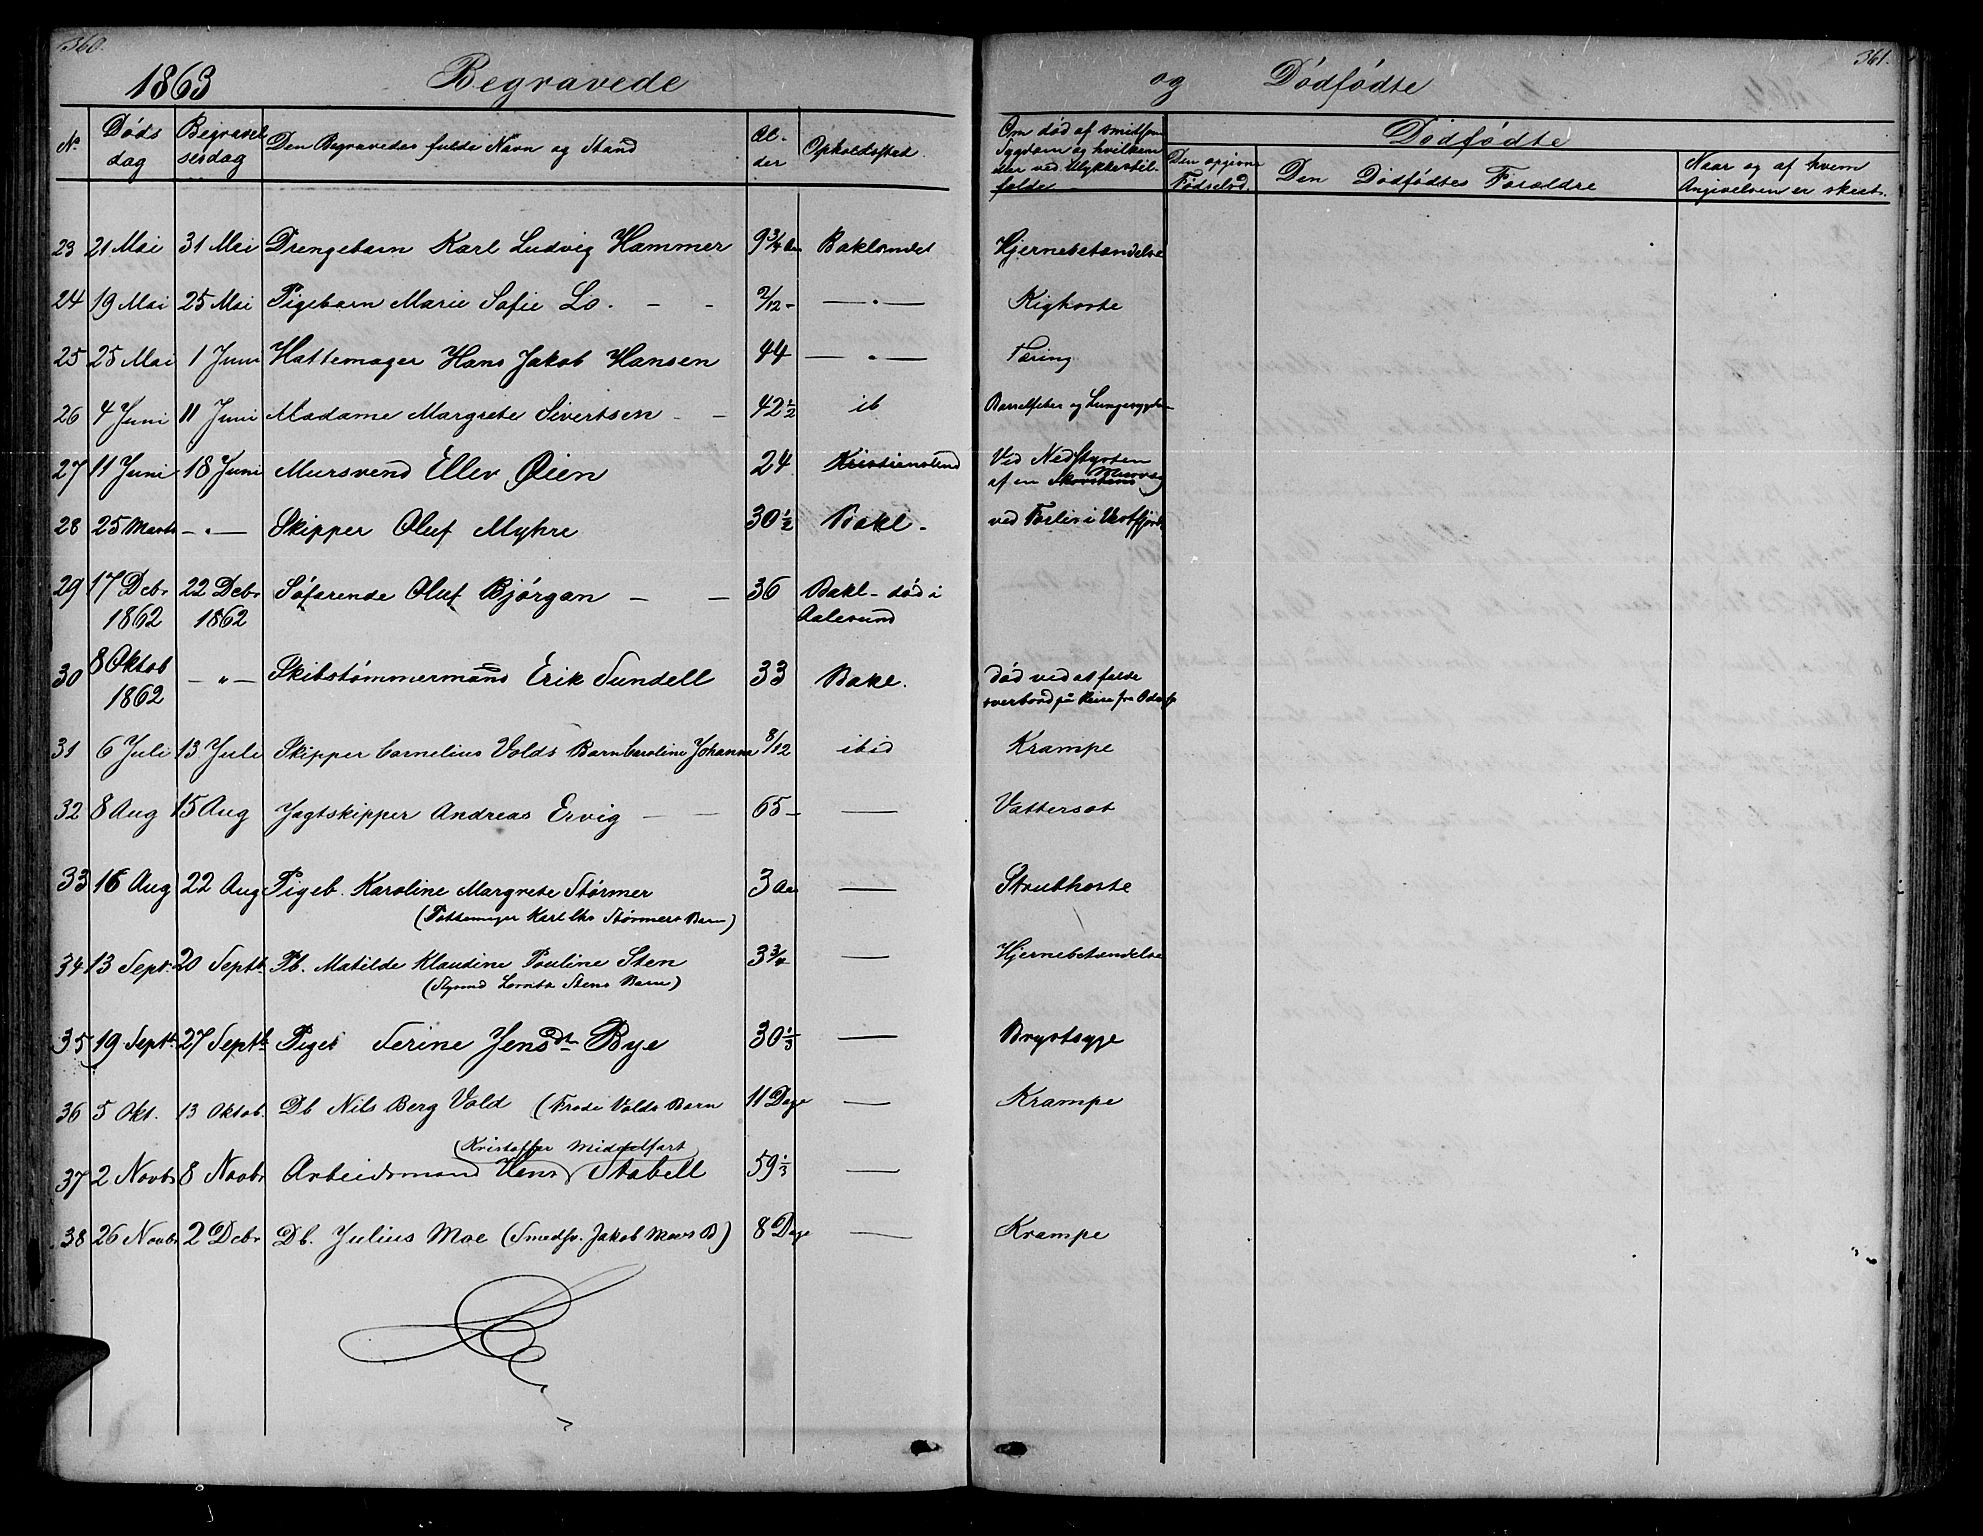 360.
1863 Begravede
No Døds dag Begravel sesdag Den Begravedes fulde Navn og Stand Al- der Opholdssted
23 21 Mai 31 Mai Drengebarn Karl Ludvig Hammer 9 3/4 Baklandet
24 19 Mai 25 Mai Pigebarn Marie Sofie Lo. - - — " —
25 25 Mai 1 Juni Hattemager Hans Jakob Hansen 44 — " —
26 4 Juni 11 Juni Madame Margrete Sivertsen - - 42 1/2 ib
27 11 Juni 18 Juni Mursvend Ellev Øien 24 Kristiansund
28 25 Marts - " - Skipper Oluf Myhre 30 1/2 Bakl -
29 17 Debr 22 Debr Søfarende Oluf Bjørgan - - 36 Bakl - død i
1862 1862 Aalesund
30 8 Oktob - " - Skibstømmermand Erik Sundell 33 Bakl.
1862
31 6 Juli 13 Juli Skipper Cornelius Volds Barn Caroline Johanna 8/12 ibid
32 8 Aug 15 Aug Jagtskipper Andreas Ervig - - 65 - —
33 16 Aug 22 Aug Pigeb. Karoline Margrete Størmer 3 Aar —
(Pottemager Karl Størmers Barn)
34 13 Sept. 20 Septb. Pb. Matilde Klaudine Pauline Sten 3 3/4 —
(Styrmd Lornts Stens Barn)
35 19 Septb. 27 Septb. Pige Serine Jensdt Bye 30 1/3 —
36 5 Okt. 13 Oktob. Db Nils Berg Vold (Frode Volds Barn 11 Dage —
(Kristoffer Middelfart)
37 2 Novbr 8 Novbr Arbeidsmand Hans Stabell 59 1/3 —
38 26 Novbr 2 Debr Db. Julius Moe (Smedsv. Jakob Moes B) 8 Dage —
361.
og Dødfødte
Om død af smitsom Sygdom og hvilken eller ved Ulykkestil- fælde
Dødfødte
Den opgivne Fødselsd. Den Dødfødtes Forældre Naar og af hvem Angivelsen er skeet.
Hjernebetændelse
Kighoste
Tæring
Barselfeber og Lungesygdom
Ved Nedstyrten
af en Skorstens
ved Forlis i Vestfjord
død ved at falde
overbord på Reise fra
Krampe
Vattersot
Strubhoste
Hjernebetændelse
Brystsyge
Krampe
Krampe